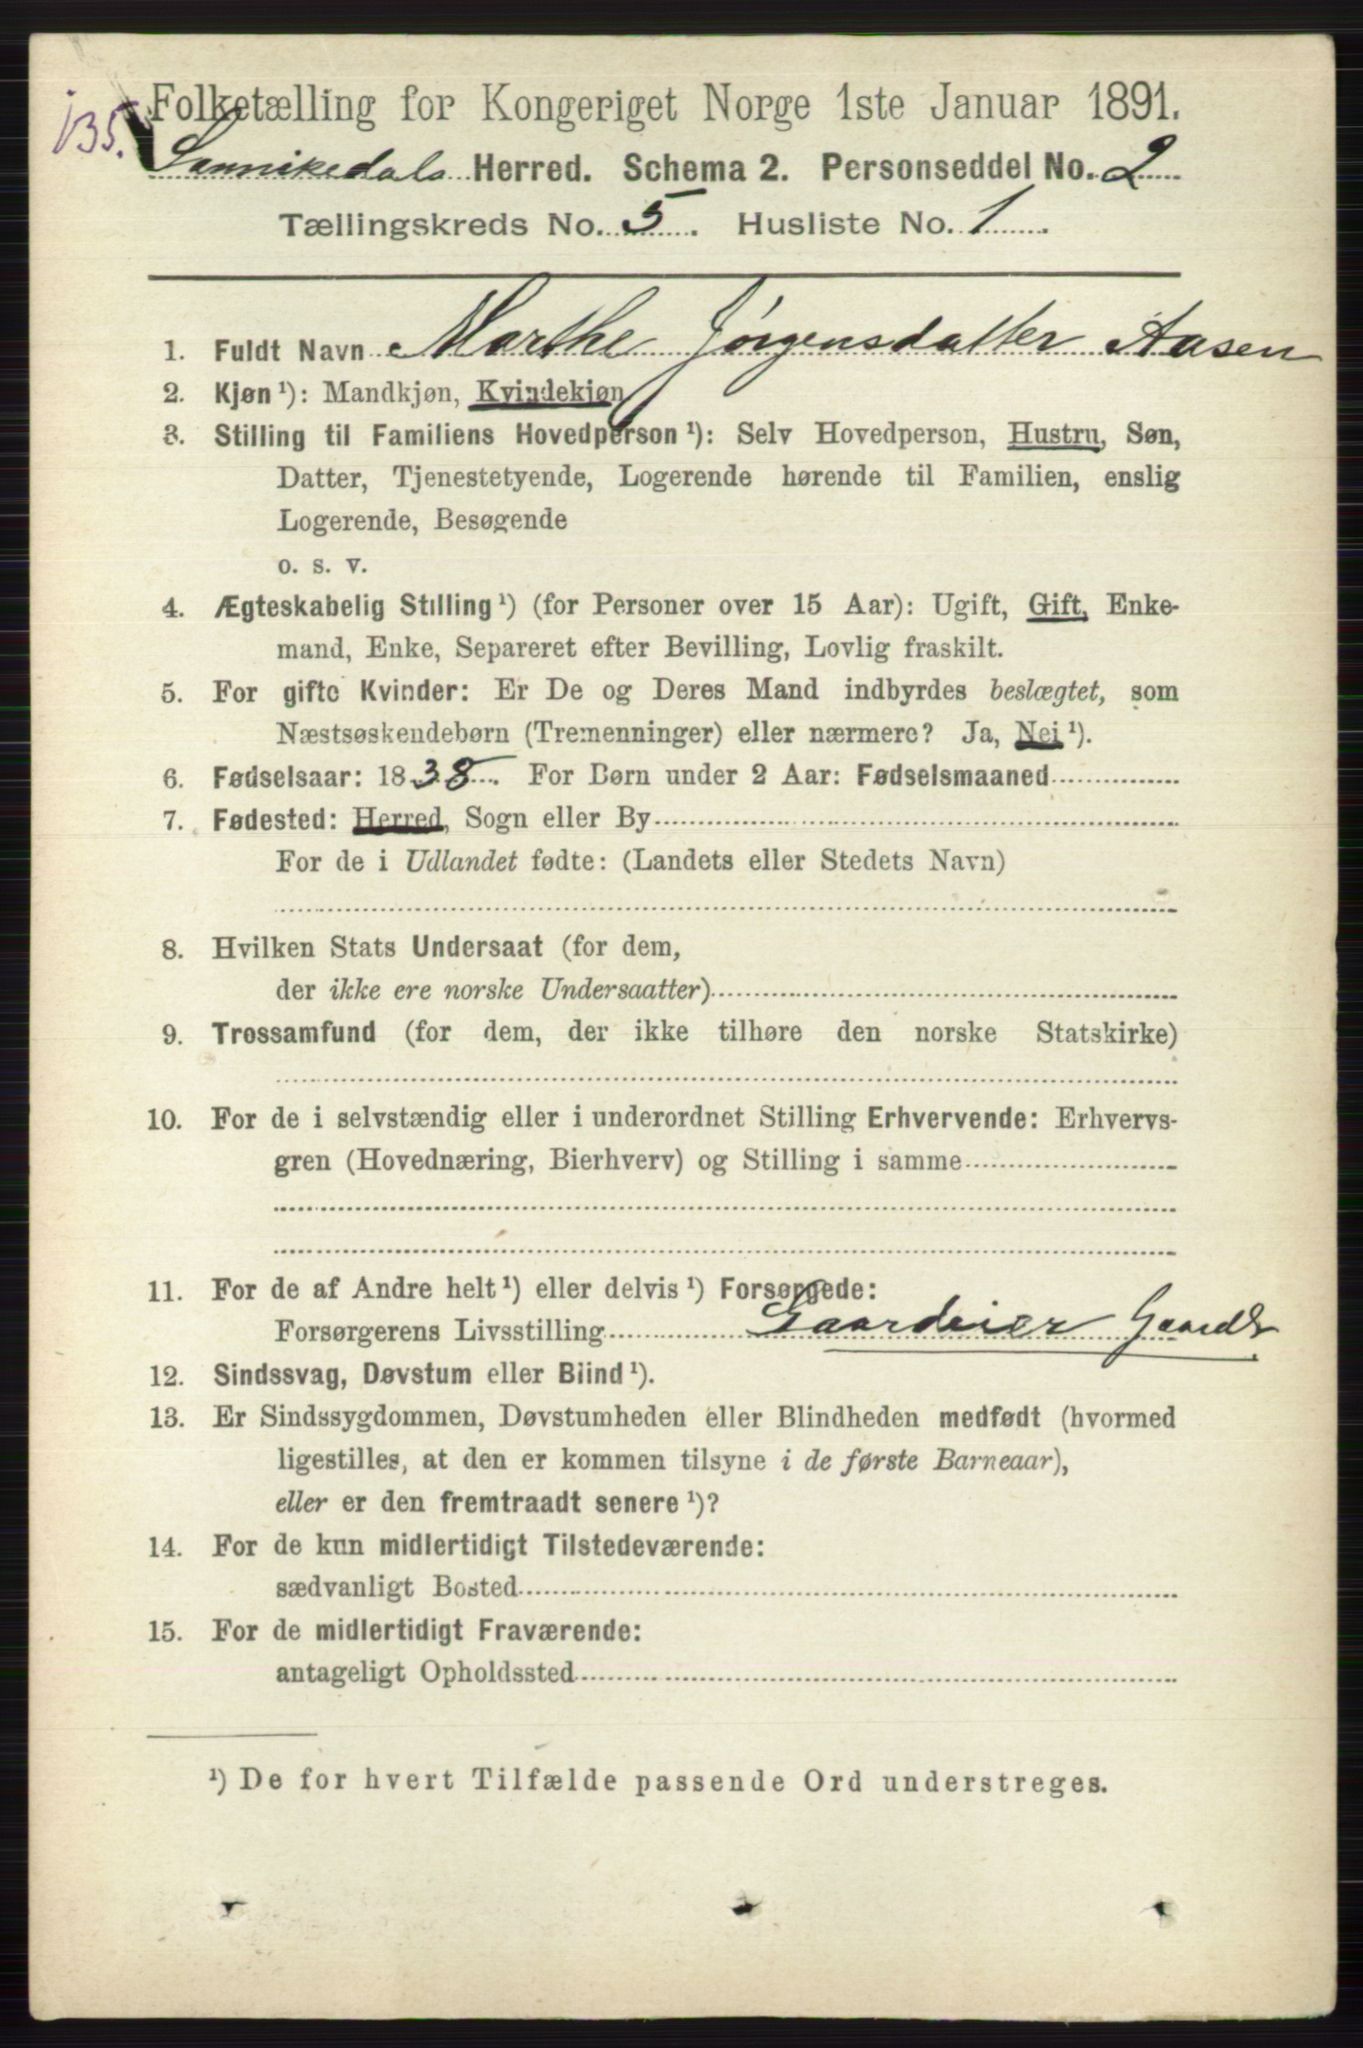 135.
Folketælling for Kongeriget Norge 1ste Januar 1891.
Sannikedals Herred. Schema 2. Personseddel No. 2
Tællingskreds No. 5. Husliste No. 1.
1. Fuldt Navn Marthe Jørgensdatter Aasen
2. Kjøn¹): Mandkjøn, Kvindekjøn
3. Stilling til Familiens Hovedperson¹): Selv Hovedperson, Hustru, Søn,
Datter, Tjenestetyende, Logerende hørende til Familien, enslig
Logerende, Besøgende
o. s. v.
4. Ægteskabelig Stilling¹) (for Personer over 15 Aar): Ugift, Gift, Enke-
mand, Enke, Separeret efter Bevilling, Lovlig fraskilt.
5. For gifte Kvinder: Er De og Deres Mand indbyrdes beslægtet, som
Næstsøskendebørn (Tremenninger) eller nærmere? Ja, Nei¹).
6. Fødselsaar: 1838. For Børn under 2 Aar: Fødselsmaaned
7. Fødested: Herred, Sogn eller By
For de i Udlandet fødte: (Landets eller Stedets Navn)
8. Hvilken Stats Undersaat (for dem,
der ikke ere norske Undersaatter)
9. Trossamfund (for dem, der ikke tilhøre den norske Statskirke)
10. For de i selvstændig eller i underordnet Stilling Erhvervende: Erhvervs-
gren (Hovednæring, Bierhverv) og Stilling i samme
11. For de af Andre helt¹) eller delvis¹) Forsørgede:
Forsørgerens Livsstilling Gaardeier
12. Sindssvag, Døvstum eller Blind¹).
13. Er Sindssygdommen, Døvstumheden eller Blindheden medfødt (hvormed
ligestilles, at den er kommen tilsyne i de første Barneaar),
eller er den fremtraadt senere¹)?
14. For de kun midlertidigt Tilstedeværende:
sædvanligt Bosted
15. For de midlertidigt Fraværende:
antageligt Opholdssted
¹) De for hvert Tilfælde passende Ord understreges.